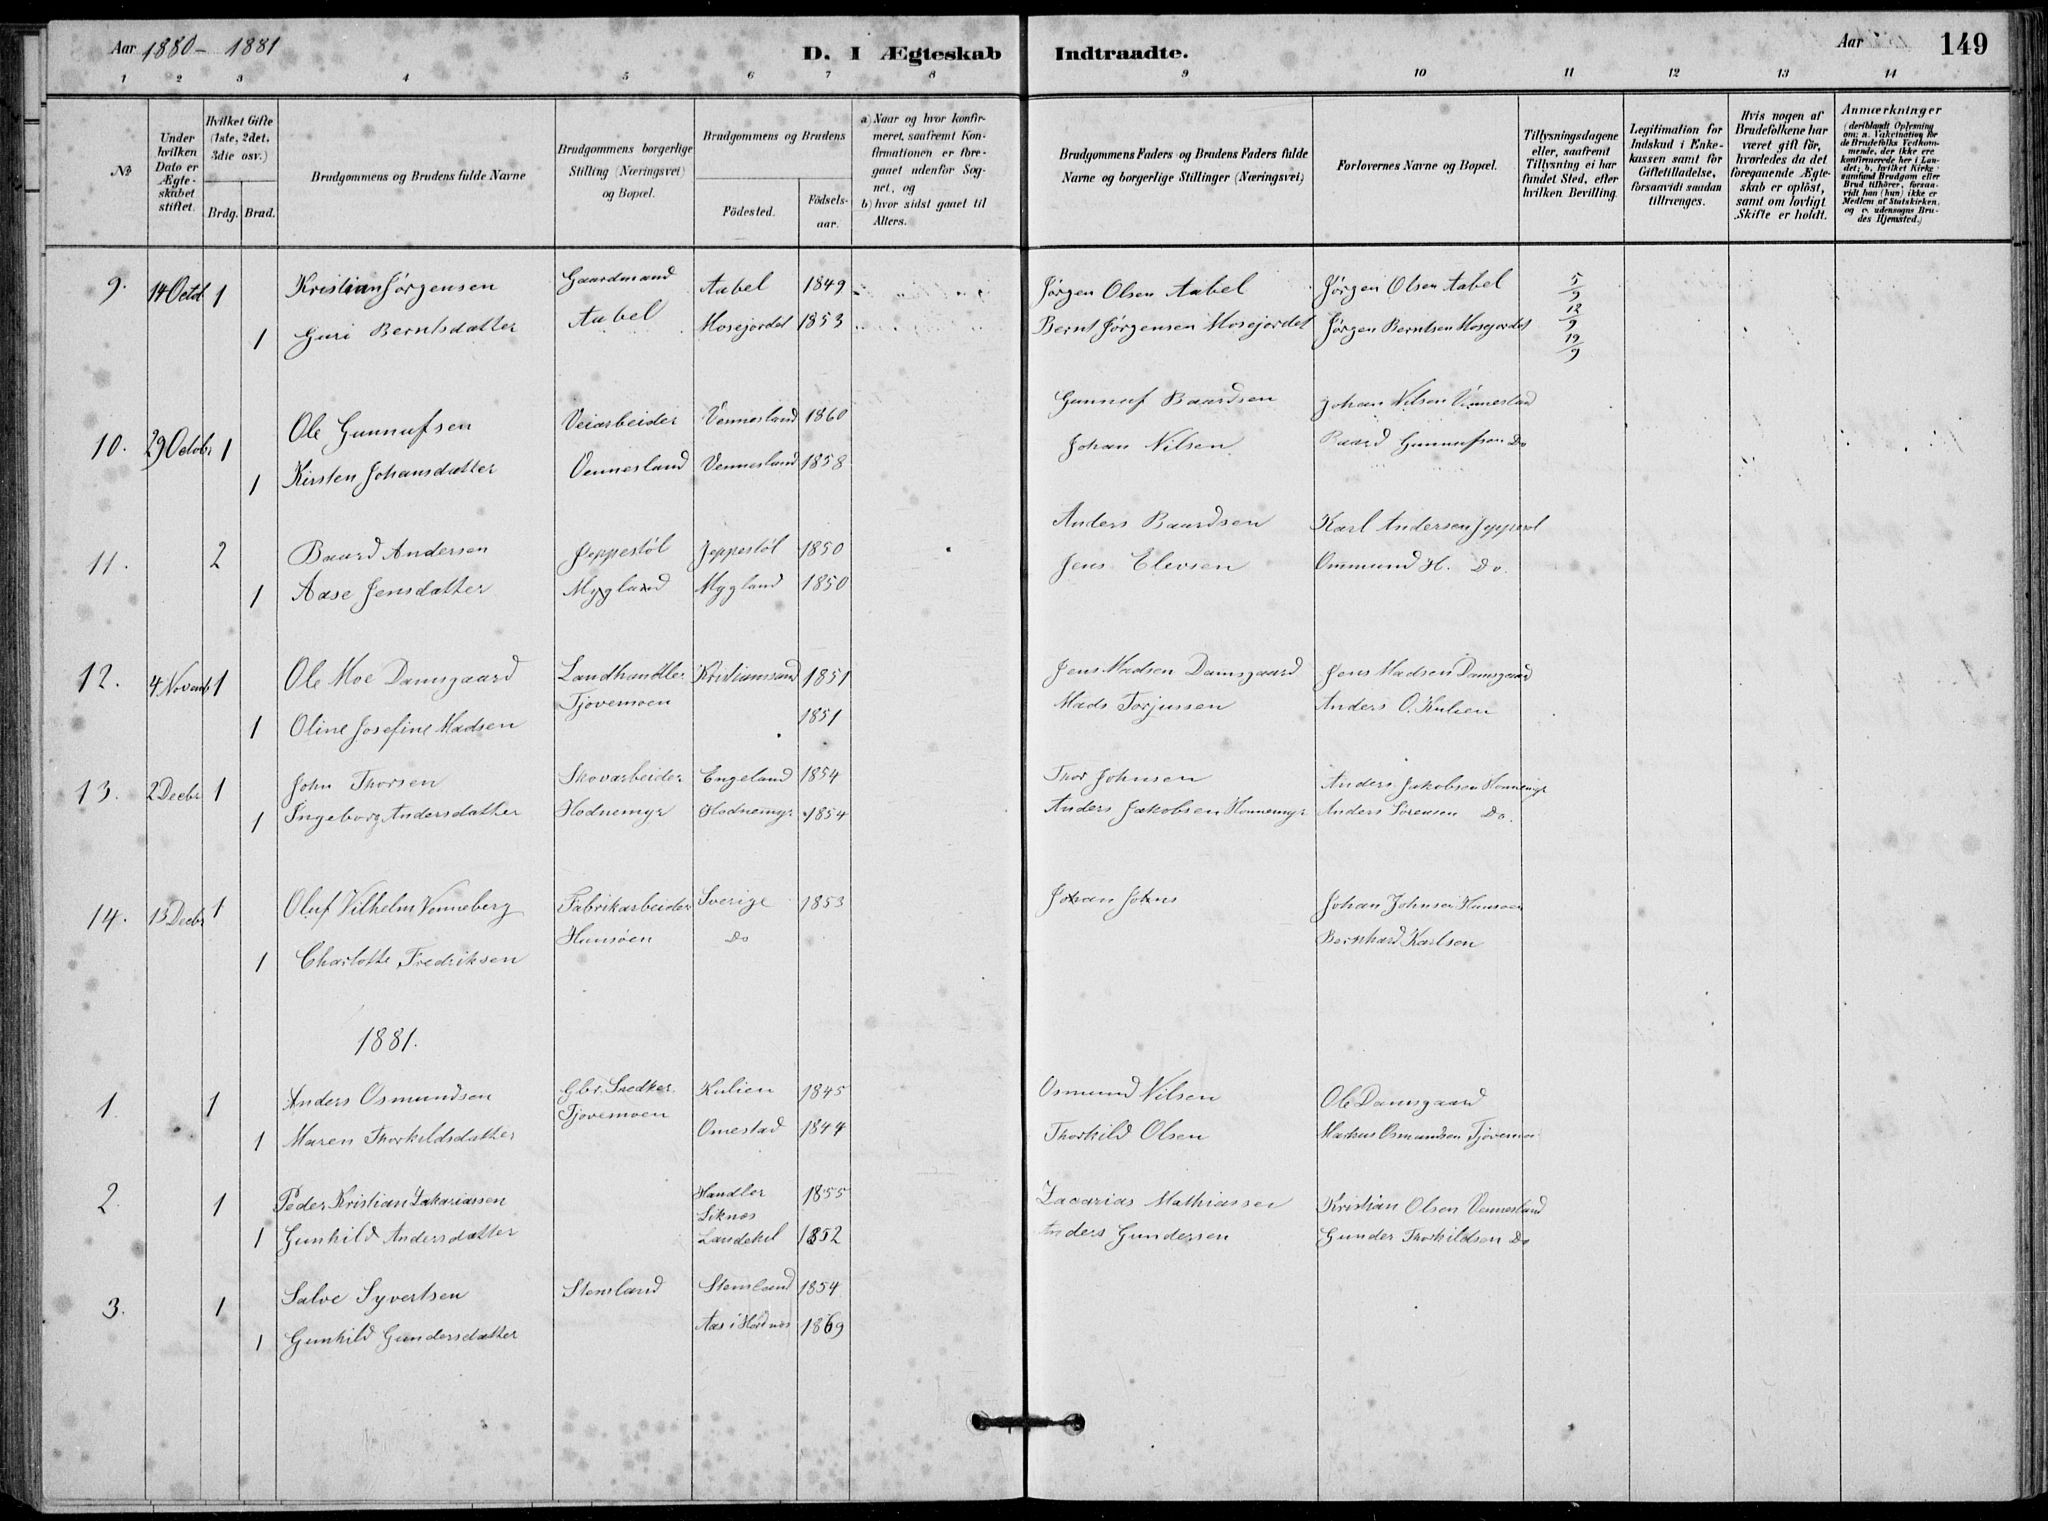 Aar 1880 - 1881
D. I Ægteskab Indtraadte.
Aar
149
1 2 3 4 5 6 7 8 9 10 11 12 13 14
No
Under hvilken Dato er Ægteskabet stiftet.
Hvilket Gifte (1ste, 2det, 3die osv.)
Brdg. Brud.
Brudgommens og Brudens fulde Navne
Brudgommens borgerlige Stilling (Næringsvei) og Bopæl.
Brudgommens og Brudens
Födested.
Födsels-aar.
a) Naar og hvor konfirmeret, saafremt Konfirmationen er foregaaet udenfor Sognet, og
b) hvor sidst gaaet til Alters.
Brudgommens Faders og Brudens Faders fulde Navne og borgerlige Stillinger (Næringsvei)
Forlovernes Navne og Bopæl.
Tillysningsdagene eller, saafremt Tillysning ei har fundet Sted, efter hvilken Bevilling.
Legitimation for Indskud i Enkekassen samt for Giftetilladelse, forsaavidt saadan tiltrænges.
Hvis nogen af Brudefolkene har været gift för, hvorledes da det foregaaende Ægteskab er oplöst, samt om lovligt Skifte er holdt.
Anmærkninger
(deriblandt Oplysning om: a. Vakcination for de Brudefolks Vedkommende, der ikke ere konfirmerede her i Landet; b. hvilket Kirkesamfund Brudgom eller Brud tilhörer, forsaavidt han (hun) ikke er Medlem af Statskirken, og c. udensogns Brudes Hjemsted.)
9. 14 Octob 1 Kristian Jörgensen Gaardmand Aabel 1849 Jörgen Olsen Aabel Jörgen Olsen Aabel 5/9
1 Guri Berntsdatter Aabel Mosejordet 1853 Bernt Jörgensen Mosejordet Jörgen Berntsen Mosejordet 12/9
19/9
10. 29 Octobr 1 Ole Gunnufsen Veiarbeider Vennesland 1860 Gunnuf Baardsen Johan Nilsen Vennesland
1 Kirsten Johansdatter Vennesland Vennesland 1858 Johan Nilsen Baard Gunnufsen Do
11. 2 Baard Andersen Jeppestöl Jeppestöl 1850 Anders Baardsen Karl Andersen
1 Aase Jensdatter Mygland Mygland 1850 Jens Elevsen Ommund H. Do.
12. 4 Novemb 1 Ole Moe Damsgaard Landhandler Kristiansand 1851 Jens Madsen Damsgaard Jens Madsen Damsgaard
1 Oline Josefine Madsen Tjovemoen 1851 Mads Torjussen Anders O. Kulien
13. 2 Decbr 1 John Thorsen Skovarbeider Engeland 1854 Thor Johnsen Anders Jakobsen Honnemyr
1 Ingeborg Andersdatter Hodnemyr Hodnemyr 1854 Anders Jakobsen Honnemyr Anders Sörensen Do.
14. 13 Decbr 1 Oluf Vilhelm Venneberg Fabrikarbeider Sverige 1853 Johan Johns Johan Johnsen Hunsøen
1 Charlotte Fredriksen Hunsøen Do Bernhard Karlsen
1881.
1. 1 Anders Osmundsen Gbr. Snedker Kulien 1845 Osmund Nilsen Ole Damsgaard
1 Maren Thorkildsdatter Tjovemoen Omestad 1844 Thorkild Olsen Markus Osmundsen Tjövemo
2. 1 Peder Kristian Zakariassen Handler Liknes 1855 Zacarias Mathiassen Kristian Olsen Vennesland
1 Gunhild Andersdatter Landekil 1852 Anders Gundersen Gunder Thorkildsen Do
3. 1 Salve Syvertsen Stensland Stensland 1854
1 Gunhild Gundersdatter Aas i 1869